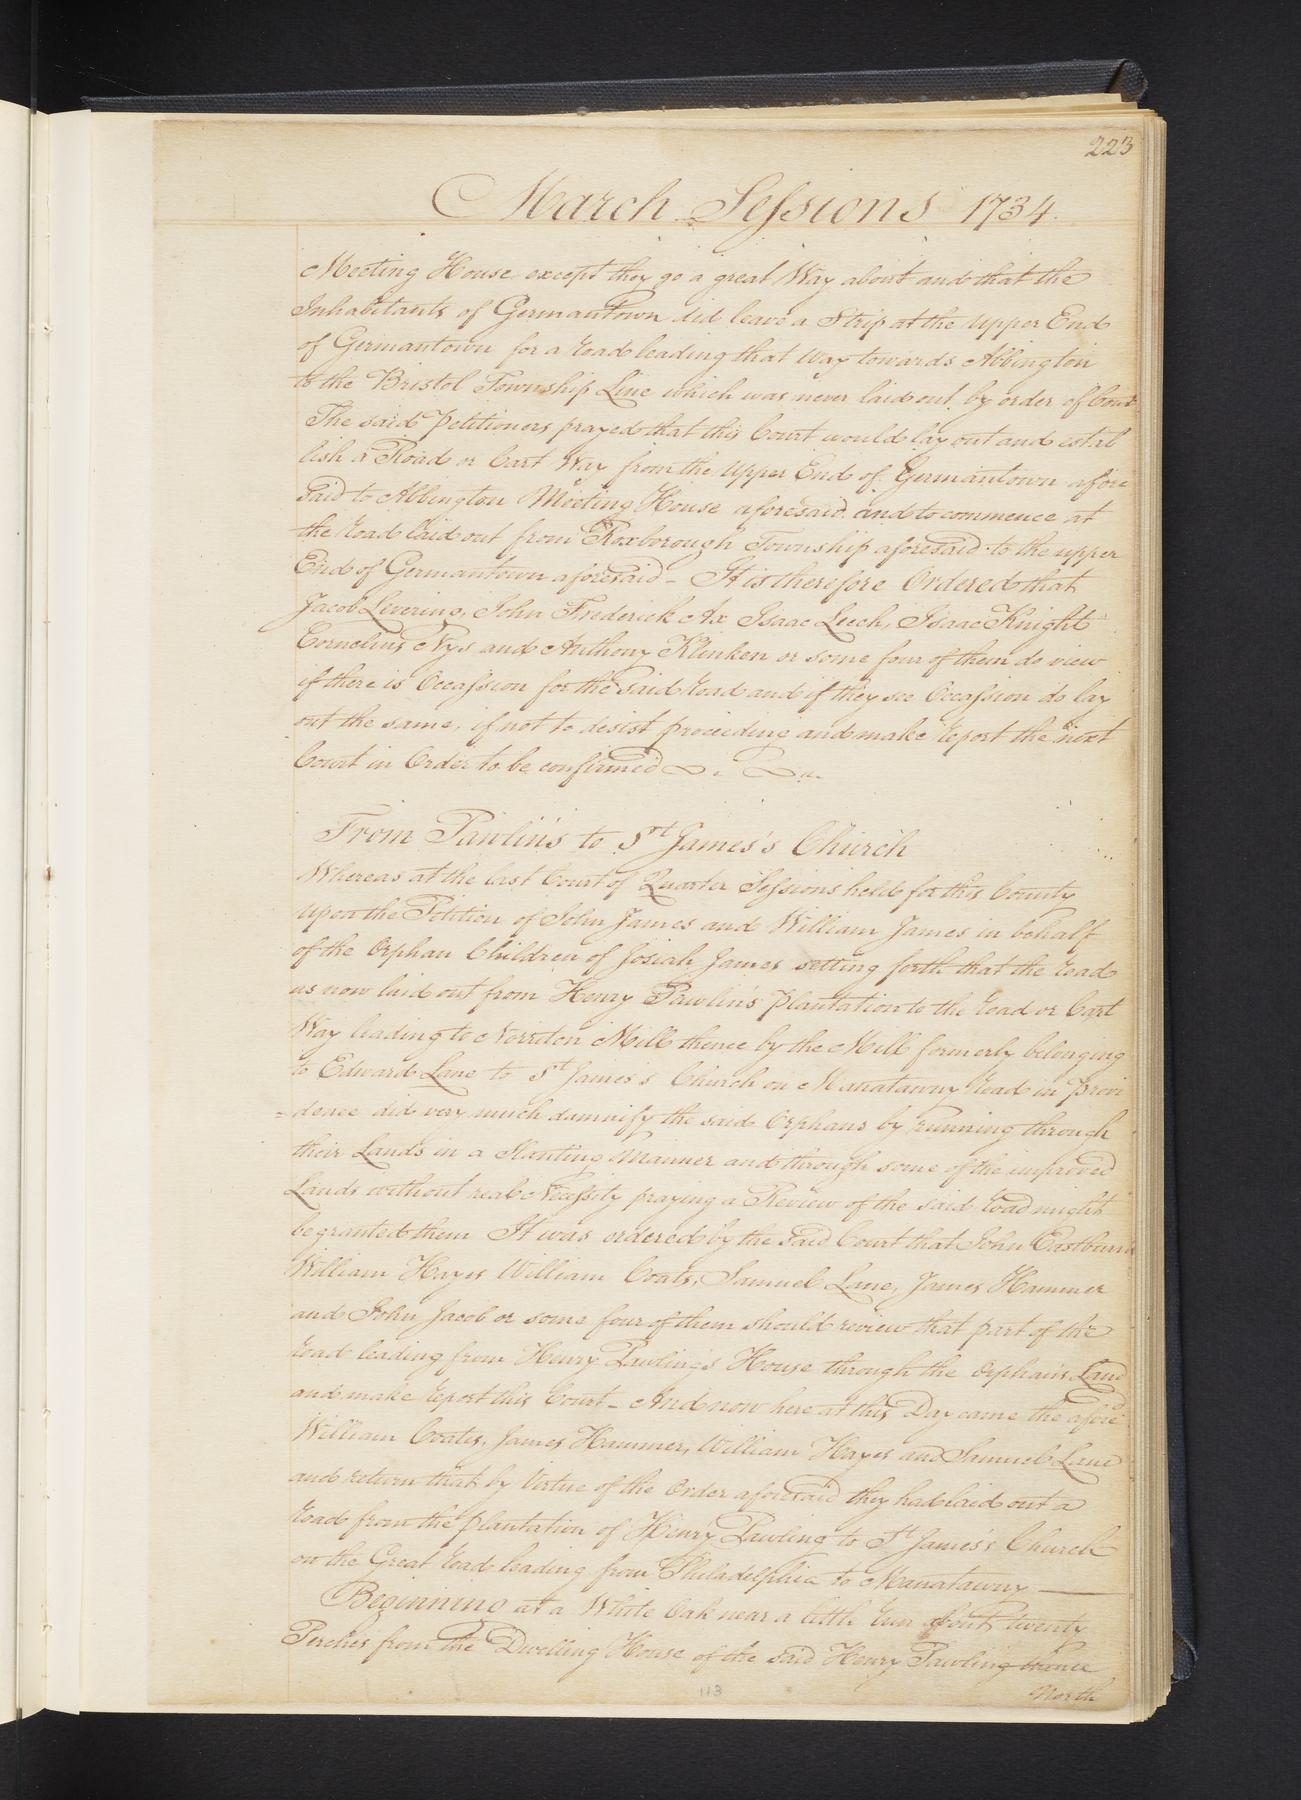 223
March Sessions 1734.
Meeting House except they go a great Way about and that the
Inhabitants of Germantown did leave a Strip at the upper End
of Germantown for a road leading that Way towards Abbington
to the Bristol Township Line which was never laid out by order of Court
The said Petitioners prayed that this Court would lay out and estab
lish a Road or Cart Way from the upper End of Germantown afore
said to Abbington Meeting House aforesaid and to commence at
the road laid out from Roxborough Township aforesaid to the upper
End of Germantown aforesaid - It is therefore Ordered that
Jacob Levering, John Frederick Ax Isaac Leech, Isaac Knight
Cornelius Nys and Anthony Klinken or some four of them do view
if there is Occassion for the said road and if they see Occassion do lay
out the same, if not to desist proceeding and make report the next
Court in Order to be confirmed
From Pawlin's to St James's Church
Whereas at the last Court of Quarter Sessions held for this County
upon the Petition of John James and William James in behalf
of the Orphan Children of Josiah James setting forth that the road
as now laid out from Henry Pawlin's Plantation to the road or Cart
Way leading to Norriton Mill thence by the Mill formerly belonging
to Edward Lane to St James's Church on Manatawny road in Provi
=dence did very much damnify the said Orphans by running through
their Lands in a Slanting Manner and through some of the improved
Lands without real Necessity praying a Review of the said road might
be granted them It was ordered by the said Court that John Eastburn
William Hayes William Coats, Samuel Lane, James Hammer
and John Jacob or some four of them should review that part of the
road leading from Henry Pawling's House through the Orphans Land
and make report this Court - And now here at this Day came the afore
William Coates, James Hammer, William Hayes and Samuel Lane
and return that by Virtue of the Order aforesaid they had laid out a
road from the plantation of Henry Pawling to St James's Church
on the Great road leading from Philadelphia to Manatawny
Beginning at a White Oak near a little run about twenty
Perches from the Dwelling House of the said Henry Pawling thence
North
113